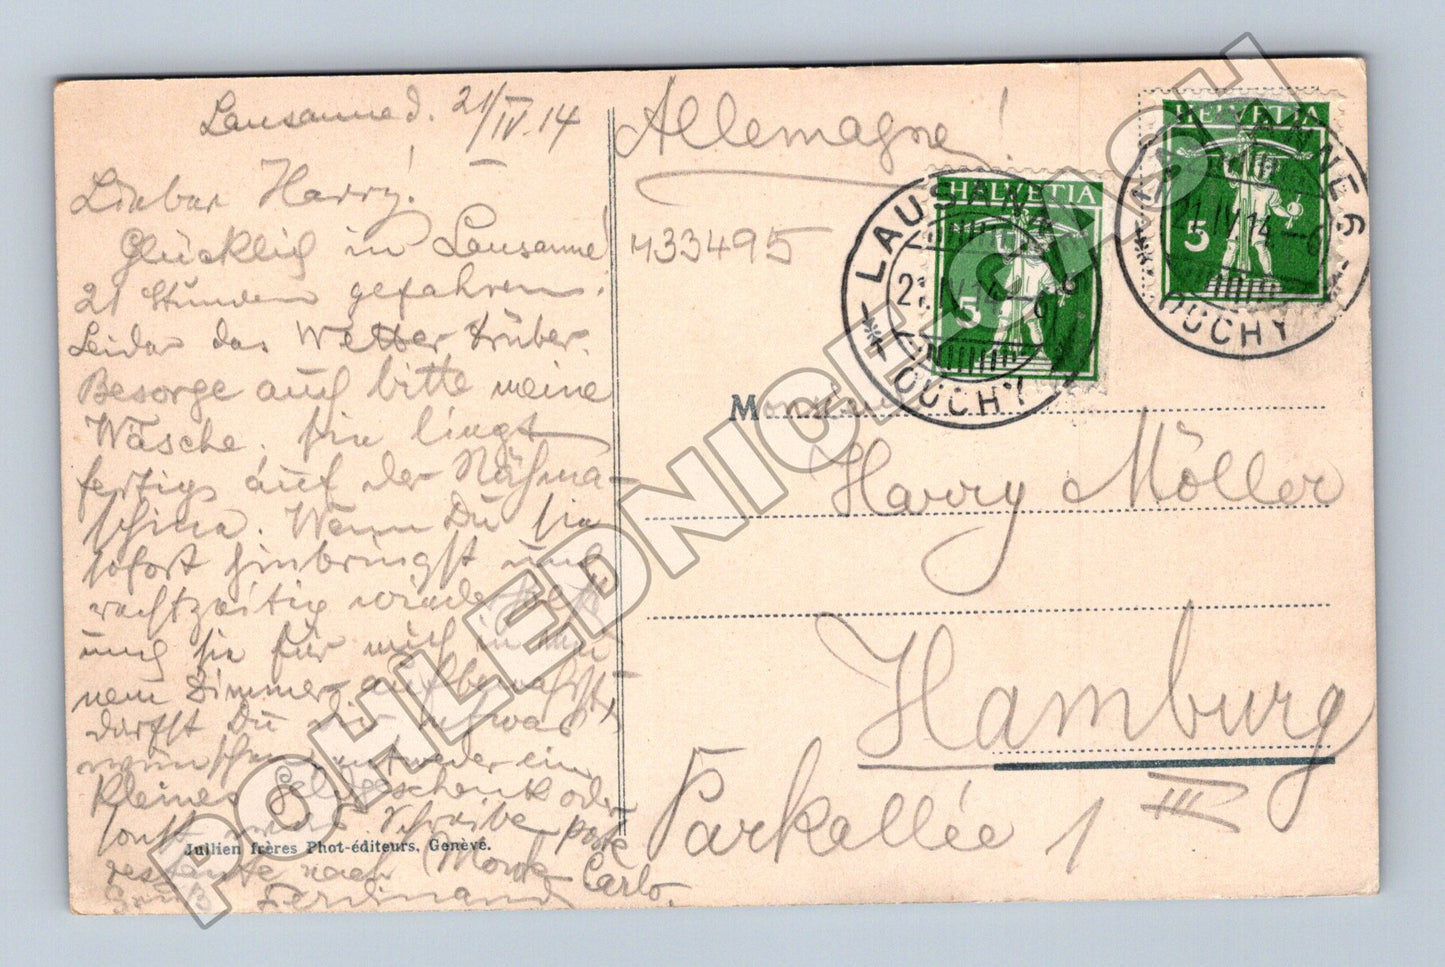 Lausanne d. 21/IV.14
Lieber Harry!
Glücklig in Lausanne!
21 Stunden gefahren.
Leider das Wetter trüber.
Besorge auch bitte meine
Wäsche. Sie liegt
fertig auf der Nähma-
schine. Wenn Du sie
sofort hinbringst und
rechtzeitig wieder holst
und sie für mich in mei
nem Zimmer aufbewahrst,
darfst Du dir etwas
wünschen, entweder ein
kleines Geldgeschenk oder
sonst was. Schreibe poste
restante nach Monte-Carlo.
Gruß Ferdinand
Jullien frères Phot-éditeurs, Genève.
Allemagne!
433495
HELVETIA
5
LAUSANNE 6
21.IV.14 –6
OUCHY
HELVETIA
5
LAUSANNE 6
21.IV.14 –6
OUCHY
Monsieur
Harry Möller
Hamburg
Parkallée 1 III
POHLEDNICE.CASH